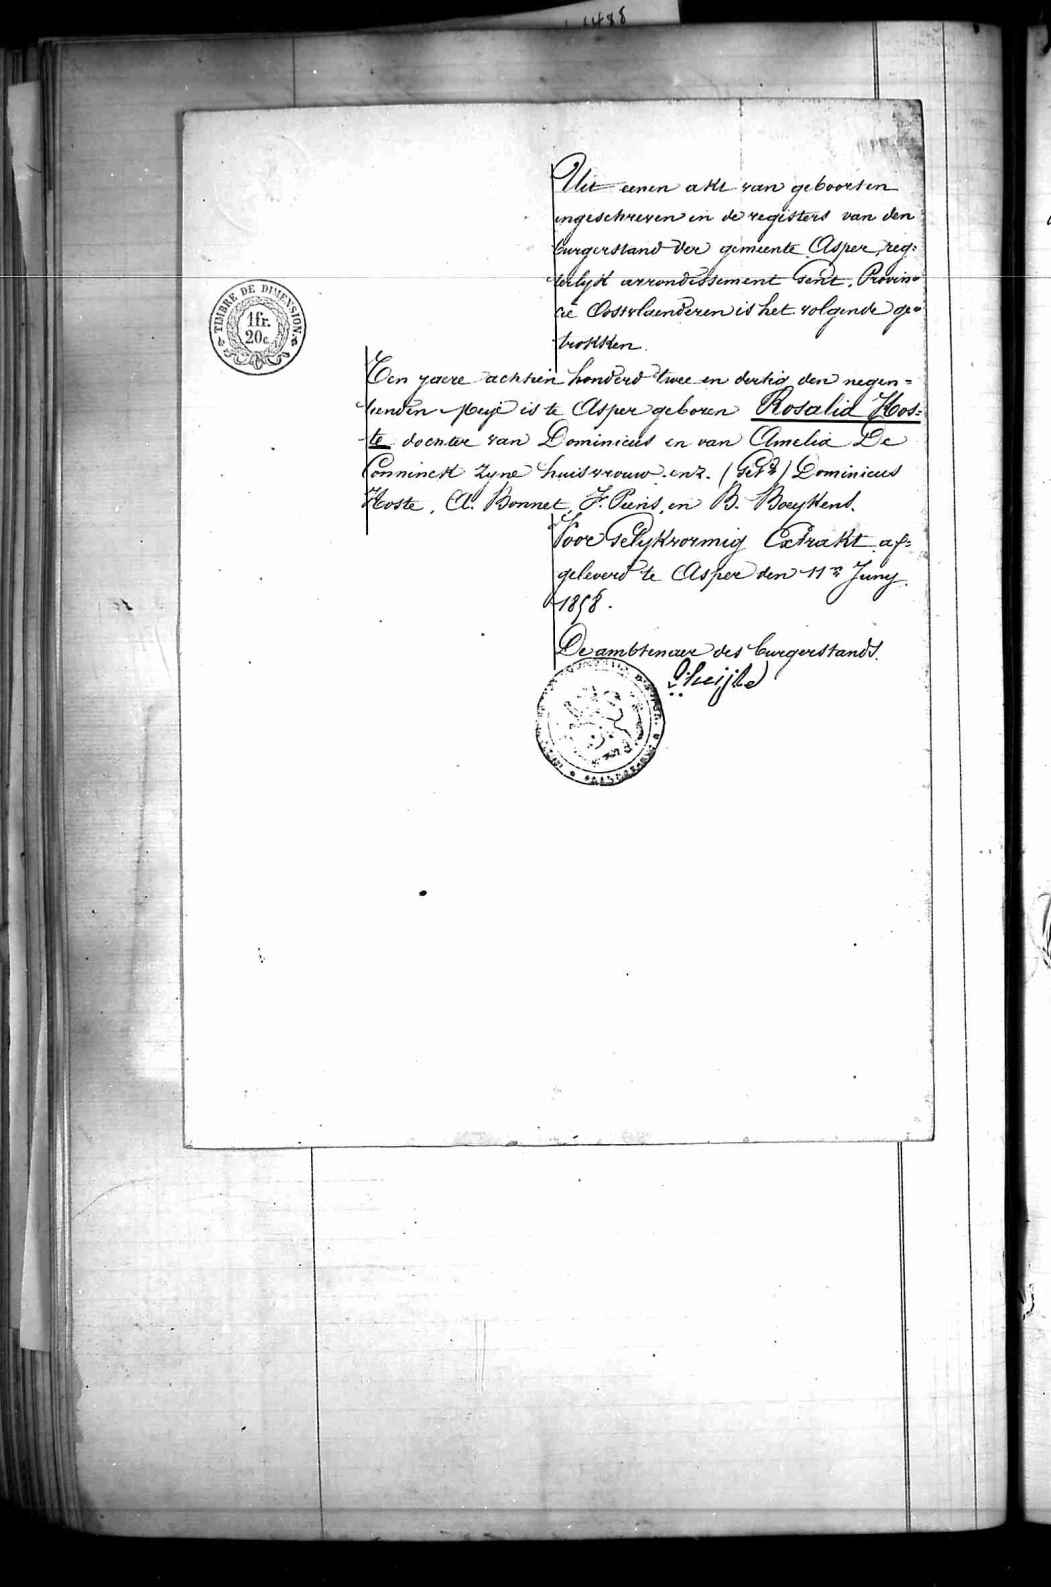 1488
Uit eenen akt van geboorten
ingeschreven in de registers van den
burgerstand der gemeente Asper, reg=
terlyk arrondissement Gent, Provin=
cie Oostvlaenderen is het volgende ge=
trokken.
Ten jaere achtien honderd twee en dertig den negen=
tienden Meije is te Asper geboren Rosalia Hos=
te dochter van Dominicus en van Amelia De
Conninck zyne huisvrouw enz. (Getd) Dominicus
Hoste, A. Bonnet, F. Piens, en B. Boeykens.
Voor Gelykvormig Extrakt af=
geleverd te Asper den 11n Juny
1858.
De ambtenaer des burgerstands.
TIMBRE DE DIMENSION.
1fr.
20c.